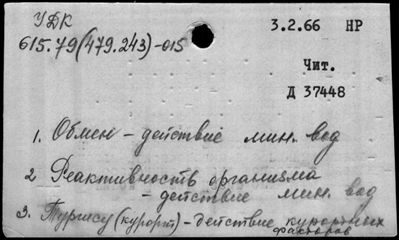 УДК
615.79(479.243)-015
3.2.66 НР
Чит.
Д 37448
1. Обмен - действие мин. вод
2 Реактивность организма
- действие мин. вод
3. Туршсу (курорт) - Действие курортных
факторов